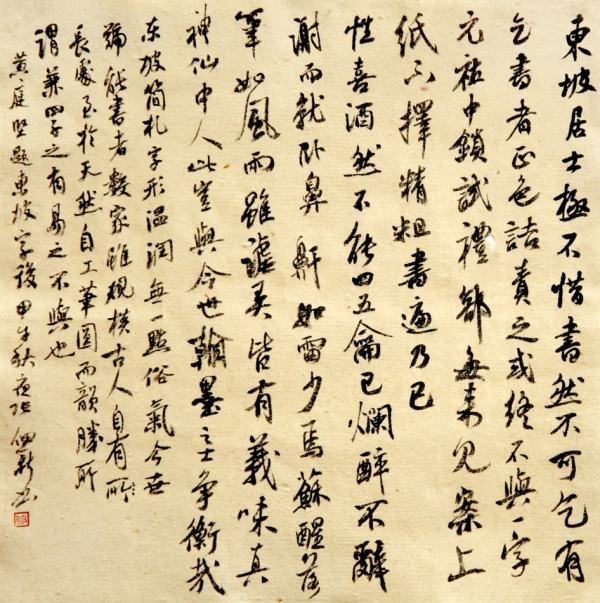 東坡居士極不惜書然不可乞有
乞書者正色詰責之或終不與一字
元祐中鎖試禮部每來見案上
紙不擇精粗書遍乃已
性喜酒然不能四五龠已爛醉不辭
謝而就卧鼻鼾如雷少焉蘇醒落
筆如風雨雖謔弄皆有義味真
神仙中人此豈與今世翰墨之士爭衡哉
东坡简札字形温潤無一點俗氣今世
號能書者數家雖規模古人自有所
長處至於天然自工筆圓而韻勝所
謂兼四子之有易之不與也
黄庭堅題東坡字後甲午秋夜